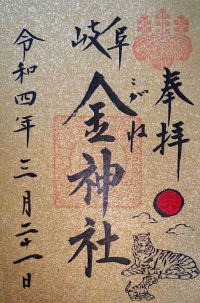 奉拝
岐阜
金神社
こがね
令和四年三月二十一日